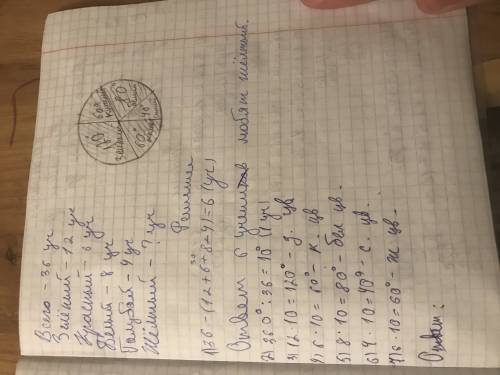 Всего - 36 уч
Зелёный - 12 уч
Красный - 6 уч
Белый - 8 уч
Голубой - 4 уч
Жёлтый - ? уч
120° зелёный
60° красный
80 белый
40°
60°
Решение
1) 36 - (12+6+8+4) = 6 (уч)
30
Ответ 6 учеников любят жёлтый.
2) 360° : 36 = 10° (1 уч)
3) 12 · 10 = 120° - з. цв
4) 6 · 10 = 60° - к. цв
5) 8 · 10 = 80° - бел цв.
6) 4 · 10 = 40° - с. цв.
7) 6 · 10 = 60° - ж цв.
Ответ: